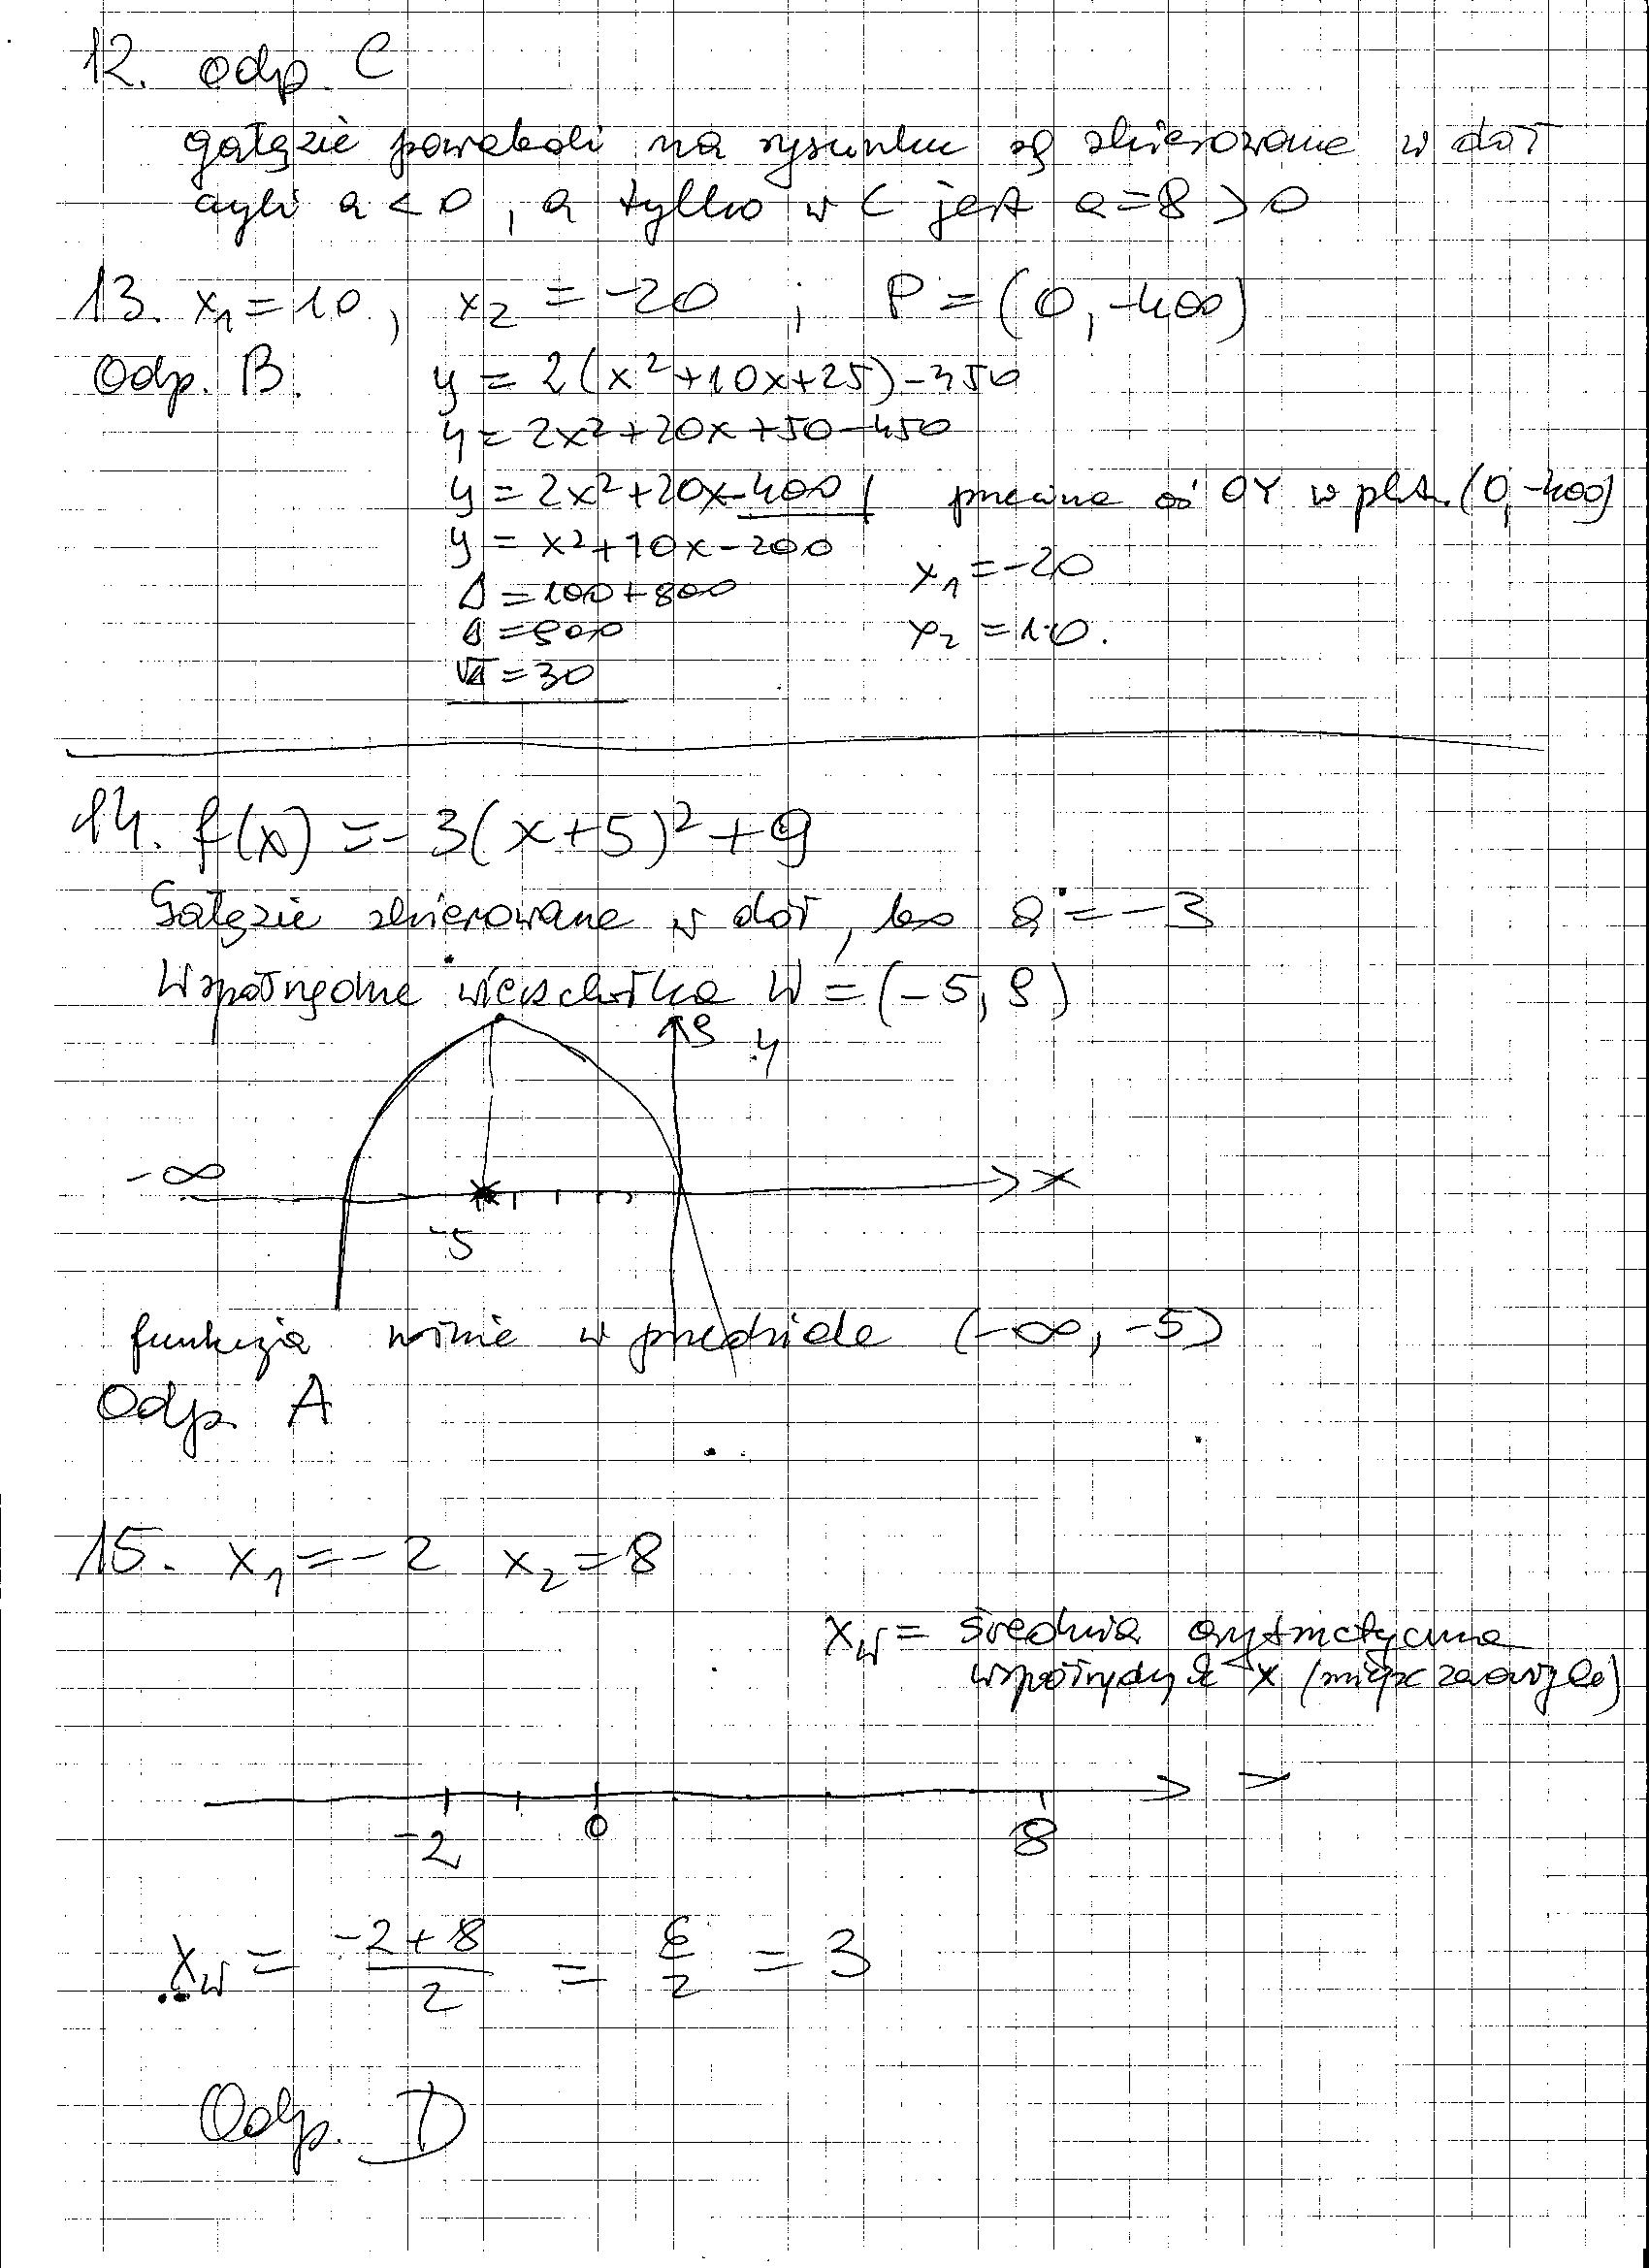 12. odp. C
gałęzie paraboli na rysunku są skierowane w dół
czyli a < 0, a tylko w C jest a=8 > 0
13. x₁=10, x₂ = -20 ; P = (0, -400)
Odp. B. y = 2(x²+10x+25)-450
y = 2x²+20x+50-450
y = 2x²+20x-400 | przecina oś OY w pkt. (0,-400)
y = x²+10x-200
x₁=-20
Δ=100+800
Δ=900
x₂=10.
√Δ=30
14. f(x) =-3(x+5)²+9
Gałęzie skierowane w dół, bo a=-3
Współrzędne wierzchołka W=(-5, 9)
9 y
-∞ x
-5
funkcja rośnie w przedziale (-∞, -5)
Odp. A
15. x₁=-2 x₂=8
x_W = średnia arytmetyczna
x (miejsc zerowych)
-2 0 8
x_W = (-2+8)/2 = 6/2 = 3
Odp. D